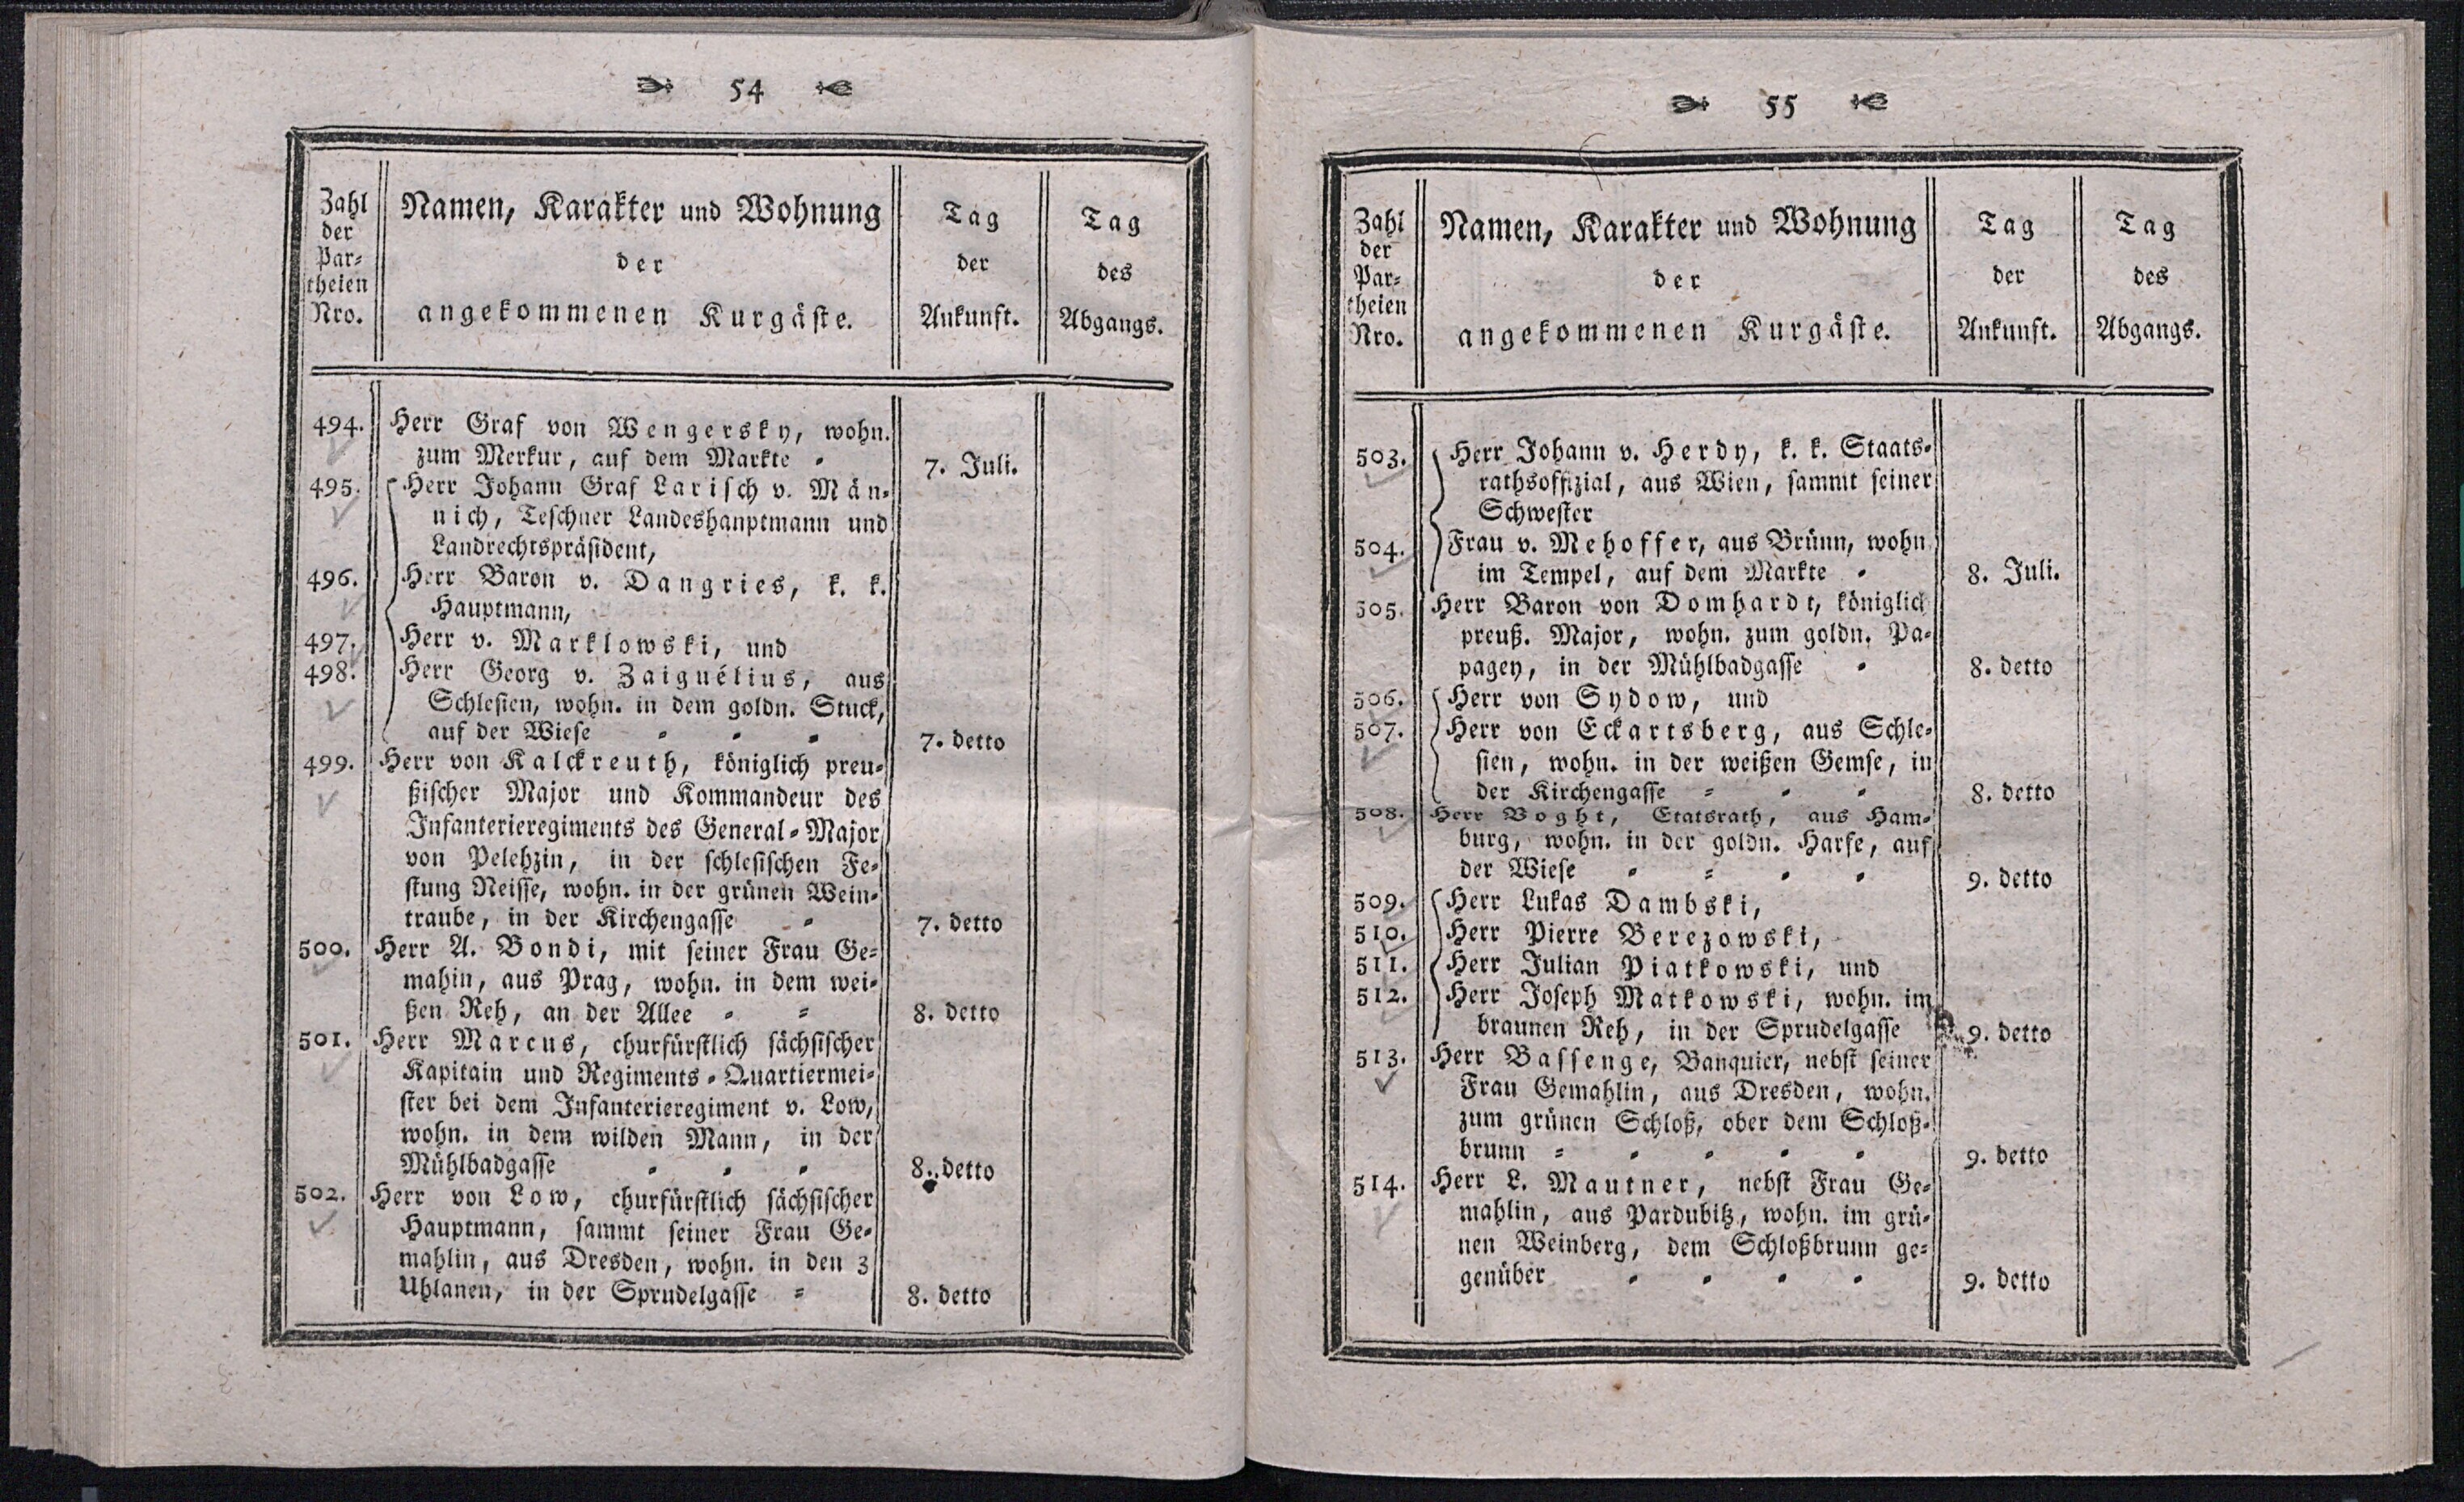 54
Zahl
der
Par-
theien
Nro.
Namen, Karakter und Wohnung
der
angekommenen Kurgäste.
Tag
der
Ankunft.
Tag
des
Abgangs.
494. Herr Graf von Wengersky, wohn.
zum Merkur, auf dem Markte - 7. Juli.
495. Herr Johann Graf Larisch v. Män-
nich, Teschner Landeshauptmann und
Landrechtspräsident,
496. Herr Baron v. Dangries, k. k.
Hauptmann,
497. Herr v. Marklowski, und
498. Herr Georg v. Zaiguélius, aus
Schlesien, wohn. in dem goldn. Stuck,
auf der Wiese - - - 7. detto
499. Herr von Kalckreuth, königlich preu-
ßischer Major und Kommandeur des
Infanterieregiments des General-Major
von Pelehzin, in der schlesischen Fe-
stung Neisse, wohn. in der grünen Wein-
traube, in der Kirchengasse - 7. detto
500. Herr A. Bondi, mit seiner Frau Ge-
mahin, aus Prag, wohn. in dem wei-
ßen Reh, an der Allee - - 8. detto
501. Herr Marcus, churfürstlich sächsischer
Kapitain und Regiments-Quartiermei-
ster bei dem Infanterieregiment v. Low,
wohn. in dem wilden Mann, in der
Mühlbadgasse - - - 8. detto
502. Herr von Low, churfürstlich sächsischer
Hauptmann, sammt seiner Frau Ge-
mahlin, aus Dresden, wohn. in den 3
Uhlanen, in der Sprudelgasse - 8. detto
55
Zahl
der
Par-
theien
Nro.
Namen, Karakter und Wohnung
der
angekommenen Kurgäste.
Tag
der
Ankunft.
Tag
des
Abgangs.
503. Herr Johann v. Herdy, k. k. Staats-
rathsoffizial, aus Wien, sammt seiner
Schwester
504. Frau v. Mehoffer, aus Brünn, wohn
im Tempel, auf dem Markte - 8. Juli.
505. Herr Baron von Domhardt, königlich
preuß. Major, wohn. zum goldn. Pa-
pagey, in der Mühlbadgasse - 8. detto
506. Herr von Sydow, und
507. Herr von Eckartsberg, aus Schle-
sien, wohn. in der weißen Gemse, in
der Kirchengasse - - - 8. detto
508. Herr Voght, Etatsrath, aus Ham-
burg, wohn. in der goldn. Harfe, auf
der Wiese - - - - 9. detto
509. Herr Lukas Dambski,
510. Herr Pierre Berezowski,
511. Herr Julian Piatkowski, und
512. Herr Joseph Matkowski, wohn. im
braunen Reh, in der Sprudelgasse 9. detto
513. Herr Bassenge, Banquier, nebst seiner
Frau Gemahlin, aus Dresden, wohn.
zum grünen Schloß, ober dem Schloß-
brunn - - - - - 9. detto
514. Herr L. Mautner, nebst Frau Ge-
mahlin, aus Pardubitz, wohn. im grü-
nen Weinberg, dem Schloßbrunn ge-
genüber - - - - 9. detto